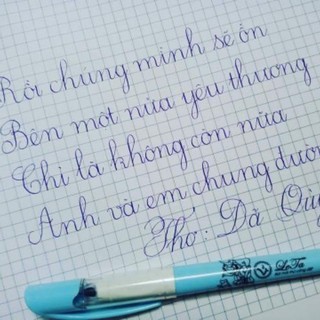 Rồi chúng mình sẽ ổn
Bên một nửa yêu thương
Chỉ là không còn nữa
Anh và em chung đườn
Thơ: Dã Qù
LeTa